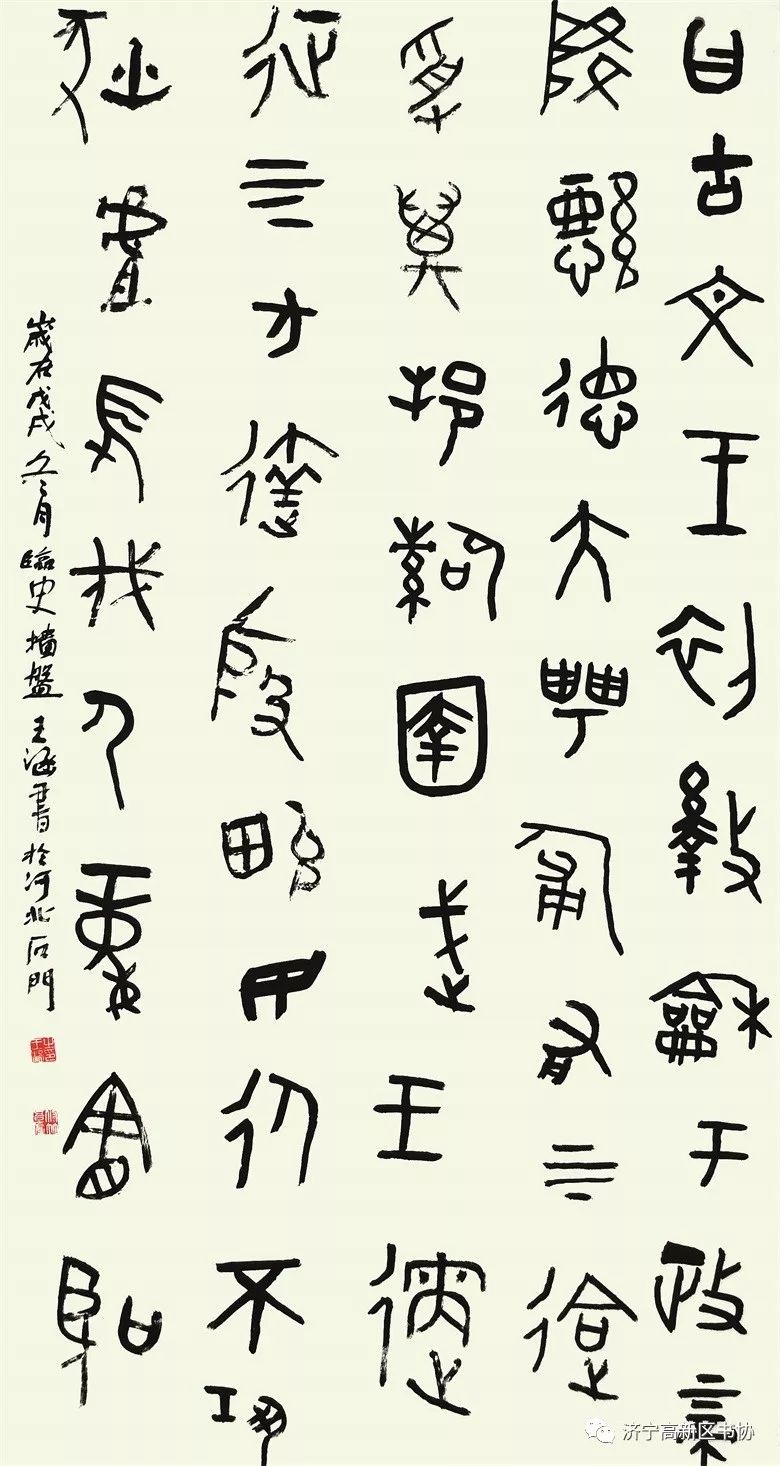 曰古文王初敄龢于政上帝
降懿德大甹匍有上下迨
受萬邦䚄圉武王遹
征四方達殷畯民永不巩
狄虘髟伐尸童憲聖
歲在戊戌冬月臨史墻盤 王涵書於河北石門
济宁高新区书协